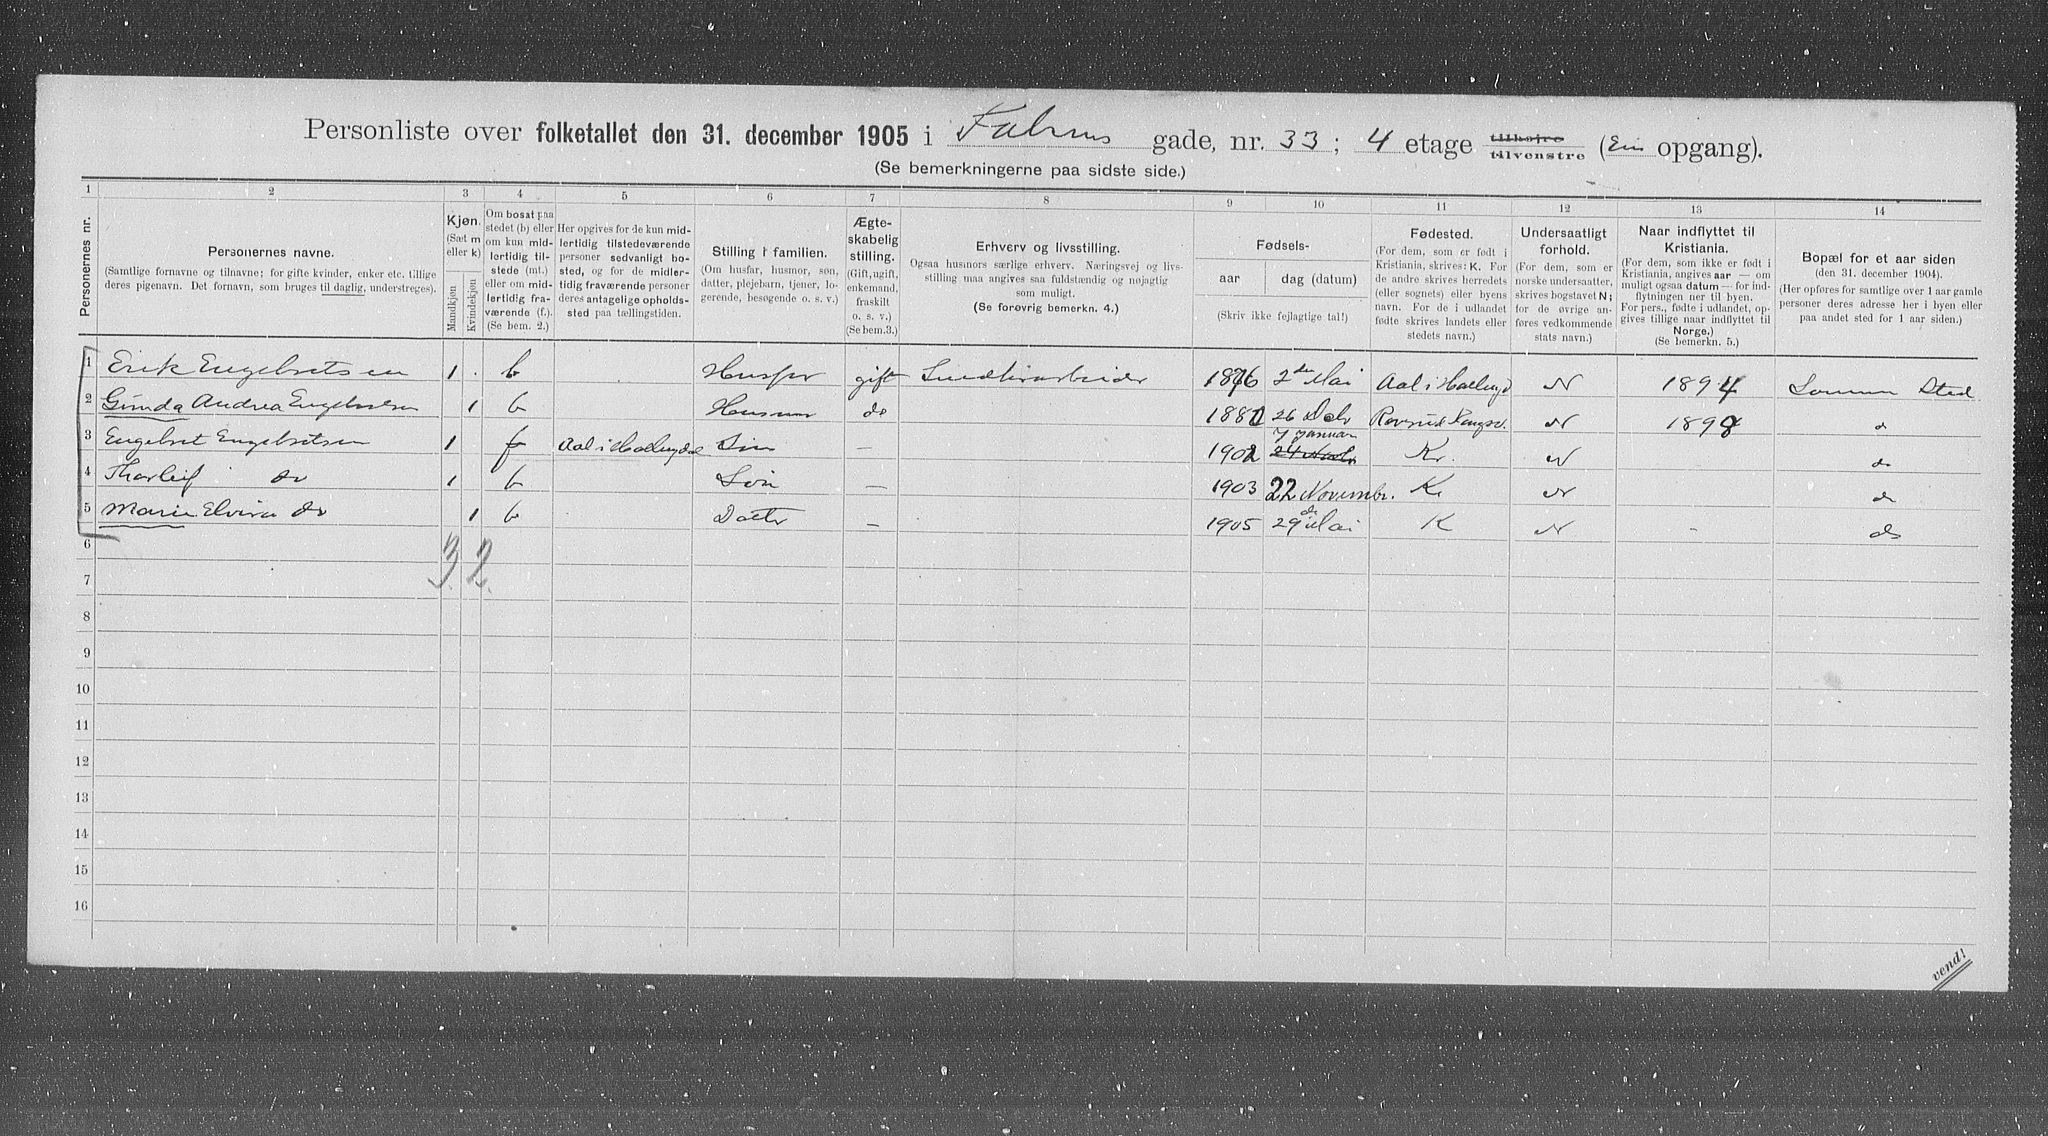 Personliste over folketallet den 31. december 1905 i Falsens gade, nr. 33; 4 etage tilhøjre tilvenstre (Ein opgang).
(Se bemerkningerne paa sidste side.)
1 2 3 4 5 6 7 8 9 10 11 12 13 14
Personernes nr.
Personernes navne.
(Samtlige fornavne og tilnavne; for gifte kvinder, enker etc. tillige
deres pigenavn. Det fornavn, som bruges til daglig, understreges).
Kjøn.
(Sæt m
eller k)
Mandkjøn
Kvindekjøn
Om bosat paa
stedet (b) eller
om kun mid-
lertidig til-
stede (mt.)
eller om mid-
lertidig fra-
værende (f.).
(Se bem. 2.)
Her opgives for de kun mid-
lertidig tilstedeværende
personer sedvanligt bo-
sted, og for de midler-
tidig fraværende personer
deres antagelige opholds-
sted paa tællingstiden.
Stilling i familien.
(Om husfar, husmor, søn,
datter, plejebarn, tjener, lo-
gerende, besøgende o. s. v.)
Ægte-
skabelig
stilling.
(Gift, ugift,
enkemand,
fraskilt
o. s. v.)
(Se bem. 3.)
Erhverv og livsstilling.
Ogsaa husmors særlige erhverv. Næringsvej og livs-
stilling maa angives saa fuldstændig og nøjagtig
som muligt.
(Se forøvrig bemerkn. 4.)
Fødsels-
aar dag (datum)
(Skriv ikke fejlagtige tal!)
Fødested.
(For dem, som er født i
Kristiania, skrives: K. For
de andre skrives herredets
(eller sognets) eller byens
navn. For de i udlandet
fødte skrives landets eller
stedets navn.)
Undersaatligt
forhold.
(For dem, som er
norske undersaatter,
skrives bogstavet N;
for de øvrige an-
føres vedkommende
stats navn.)
Naar indflyttet til
Kristiania.
(For dem, som ikke er født i
Kristiania, angives aar — om
muligt ogsaa datum — for ind-
flytningen her til byen.
For pers., fødte i udlandet, op-
gives tillige naar indflyttet til
Norge.)
(Se bemerkn. 5.)
Bopæl for et aar siden
(den 31. december 1904).
(Her opføres for samtlige over 1 aar gamle
personer deres adresse her i byen eller
paa andet sted for 1 aar siden.)
1 Erik Engebretsen 1 b Husfar gift 1876 2den Mai Aal i Hallingd N 1894 Samme Sted
2 Gunda Andrea Engebretsen 1 b Husmor do 26 Debr N 1898 do
3 Engebret Engebretsen 1 f Aal i Hallingdal Søn — 1902 7 Januar Kr. N do
4 Thorleif do 1 b Søn — 1903 22 Novembr. Kr N do
5 Marie Elvira do 1 b Datter — 1905 29de Mai K N - do
6 3 2
7
8
9
10
11
12
13
14
15
16
vend!